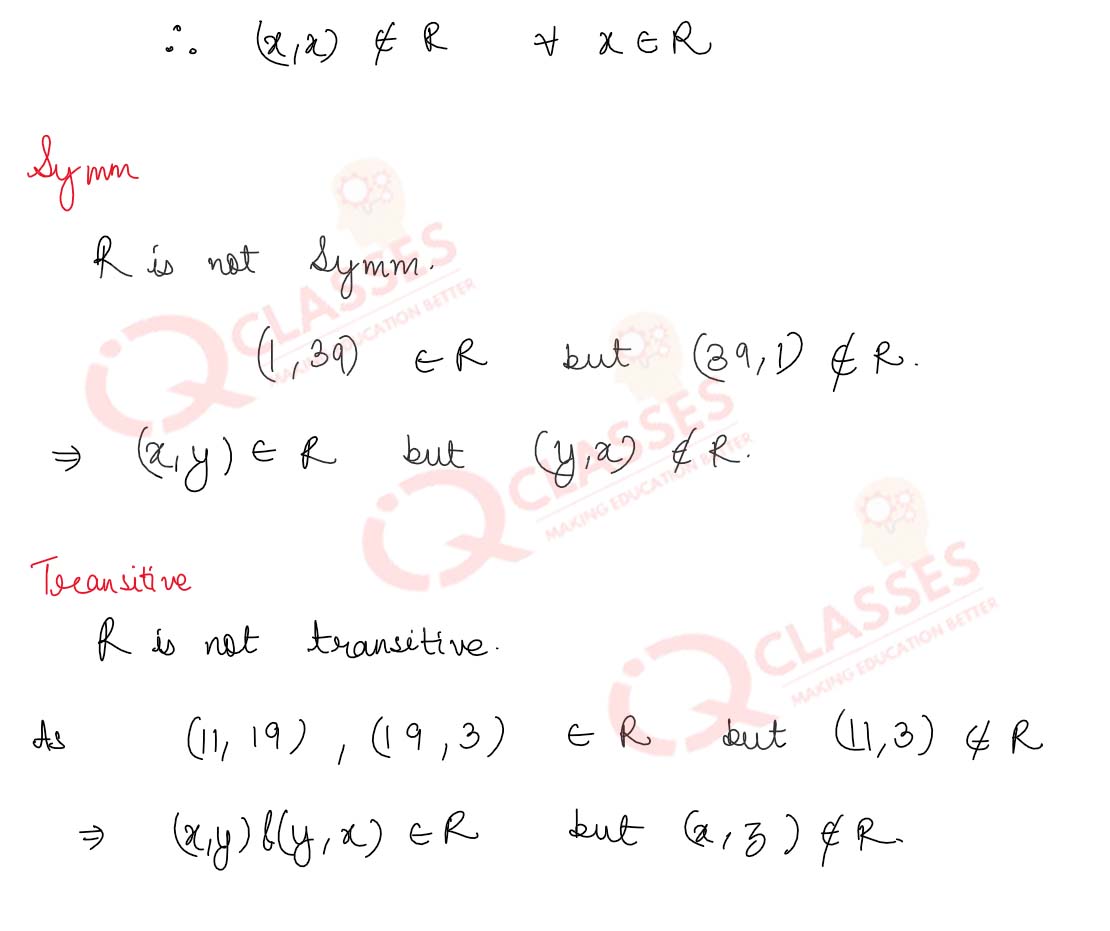 ∴ (x,x) ∉ R ∀ x ∈ R
Symm
R is not Symm.
(1,39) ∈ R but (39,1) ∉ R.
⇒ (x,y) ∈ R but (y,x) ∉ R.
Transitive
R is not transitive.
As (11,19), (19,3) ∈ R but (11,3) ∉ R
⇒ (x,y) & (y,x) ∈ R but (x,z) ∉ R.
IQ CLASSES
MAKING EDUCATION BETTER
IQ CLASSES
MAKING EDUCATION BETTER
IQ CLASSES
MAKING EDUCATION BETTER